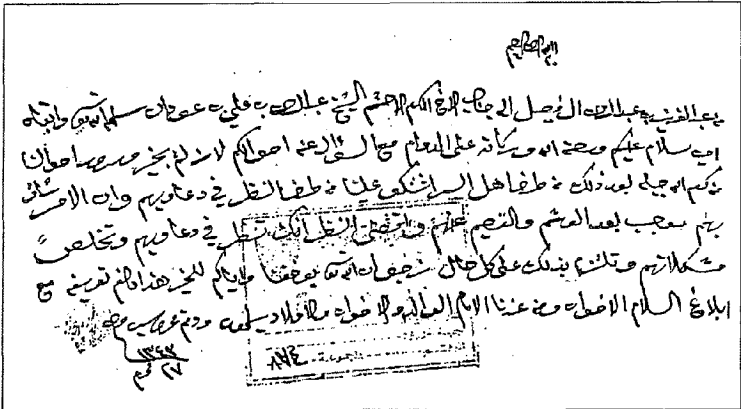 بسم الله الرحمن الرحيم
من عبدالعزيز بن عبدالرحمن ال فيصل الى جناب الاخ المكرم الاحشم الشيخ عبدالرحمن بن علي بن عودان سلمه الله تعالى وابقاه
امين سلام عليكم ورحمة الله وبركاته على الدوام مع السؤال عنه احوالكم لا زلتم بخير وسرور احوالنا
من كرم الله جميله بعد ذلك من طرف اهل السر اشتكوا علينا من طرف النظر في دعاويهم وان الامر
بهم بموجب بعد والتعب عليهم واقتضى النظر انك تنظر في دعاويهم وتخلص
مشكلاتهم وتلتزم بذلك على كل حال نرجو ان الله تعالى يوفقنا واياكم للخير هذا ما لزم تعريفه مع
ابلاغ السلام الاخوان ومن عندنا الامام الوالد والاخوان والاولاد يسلمون ودمتم
١٣٤٣
٢٧ محرم
٨٧٤